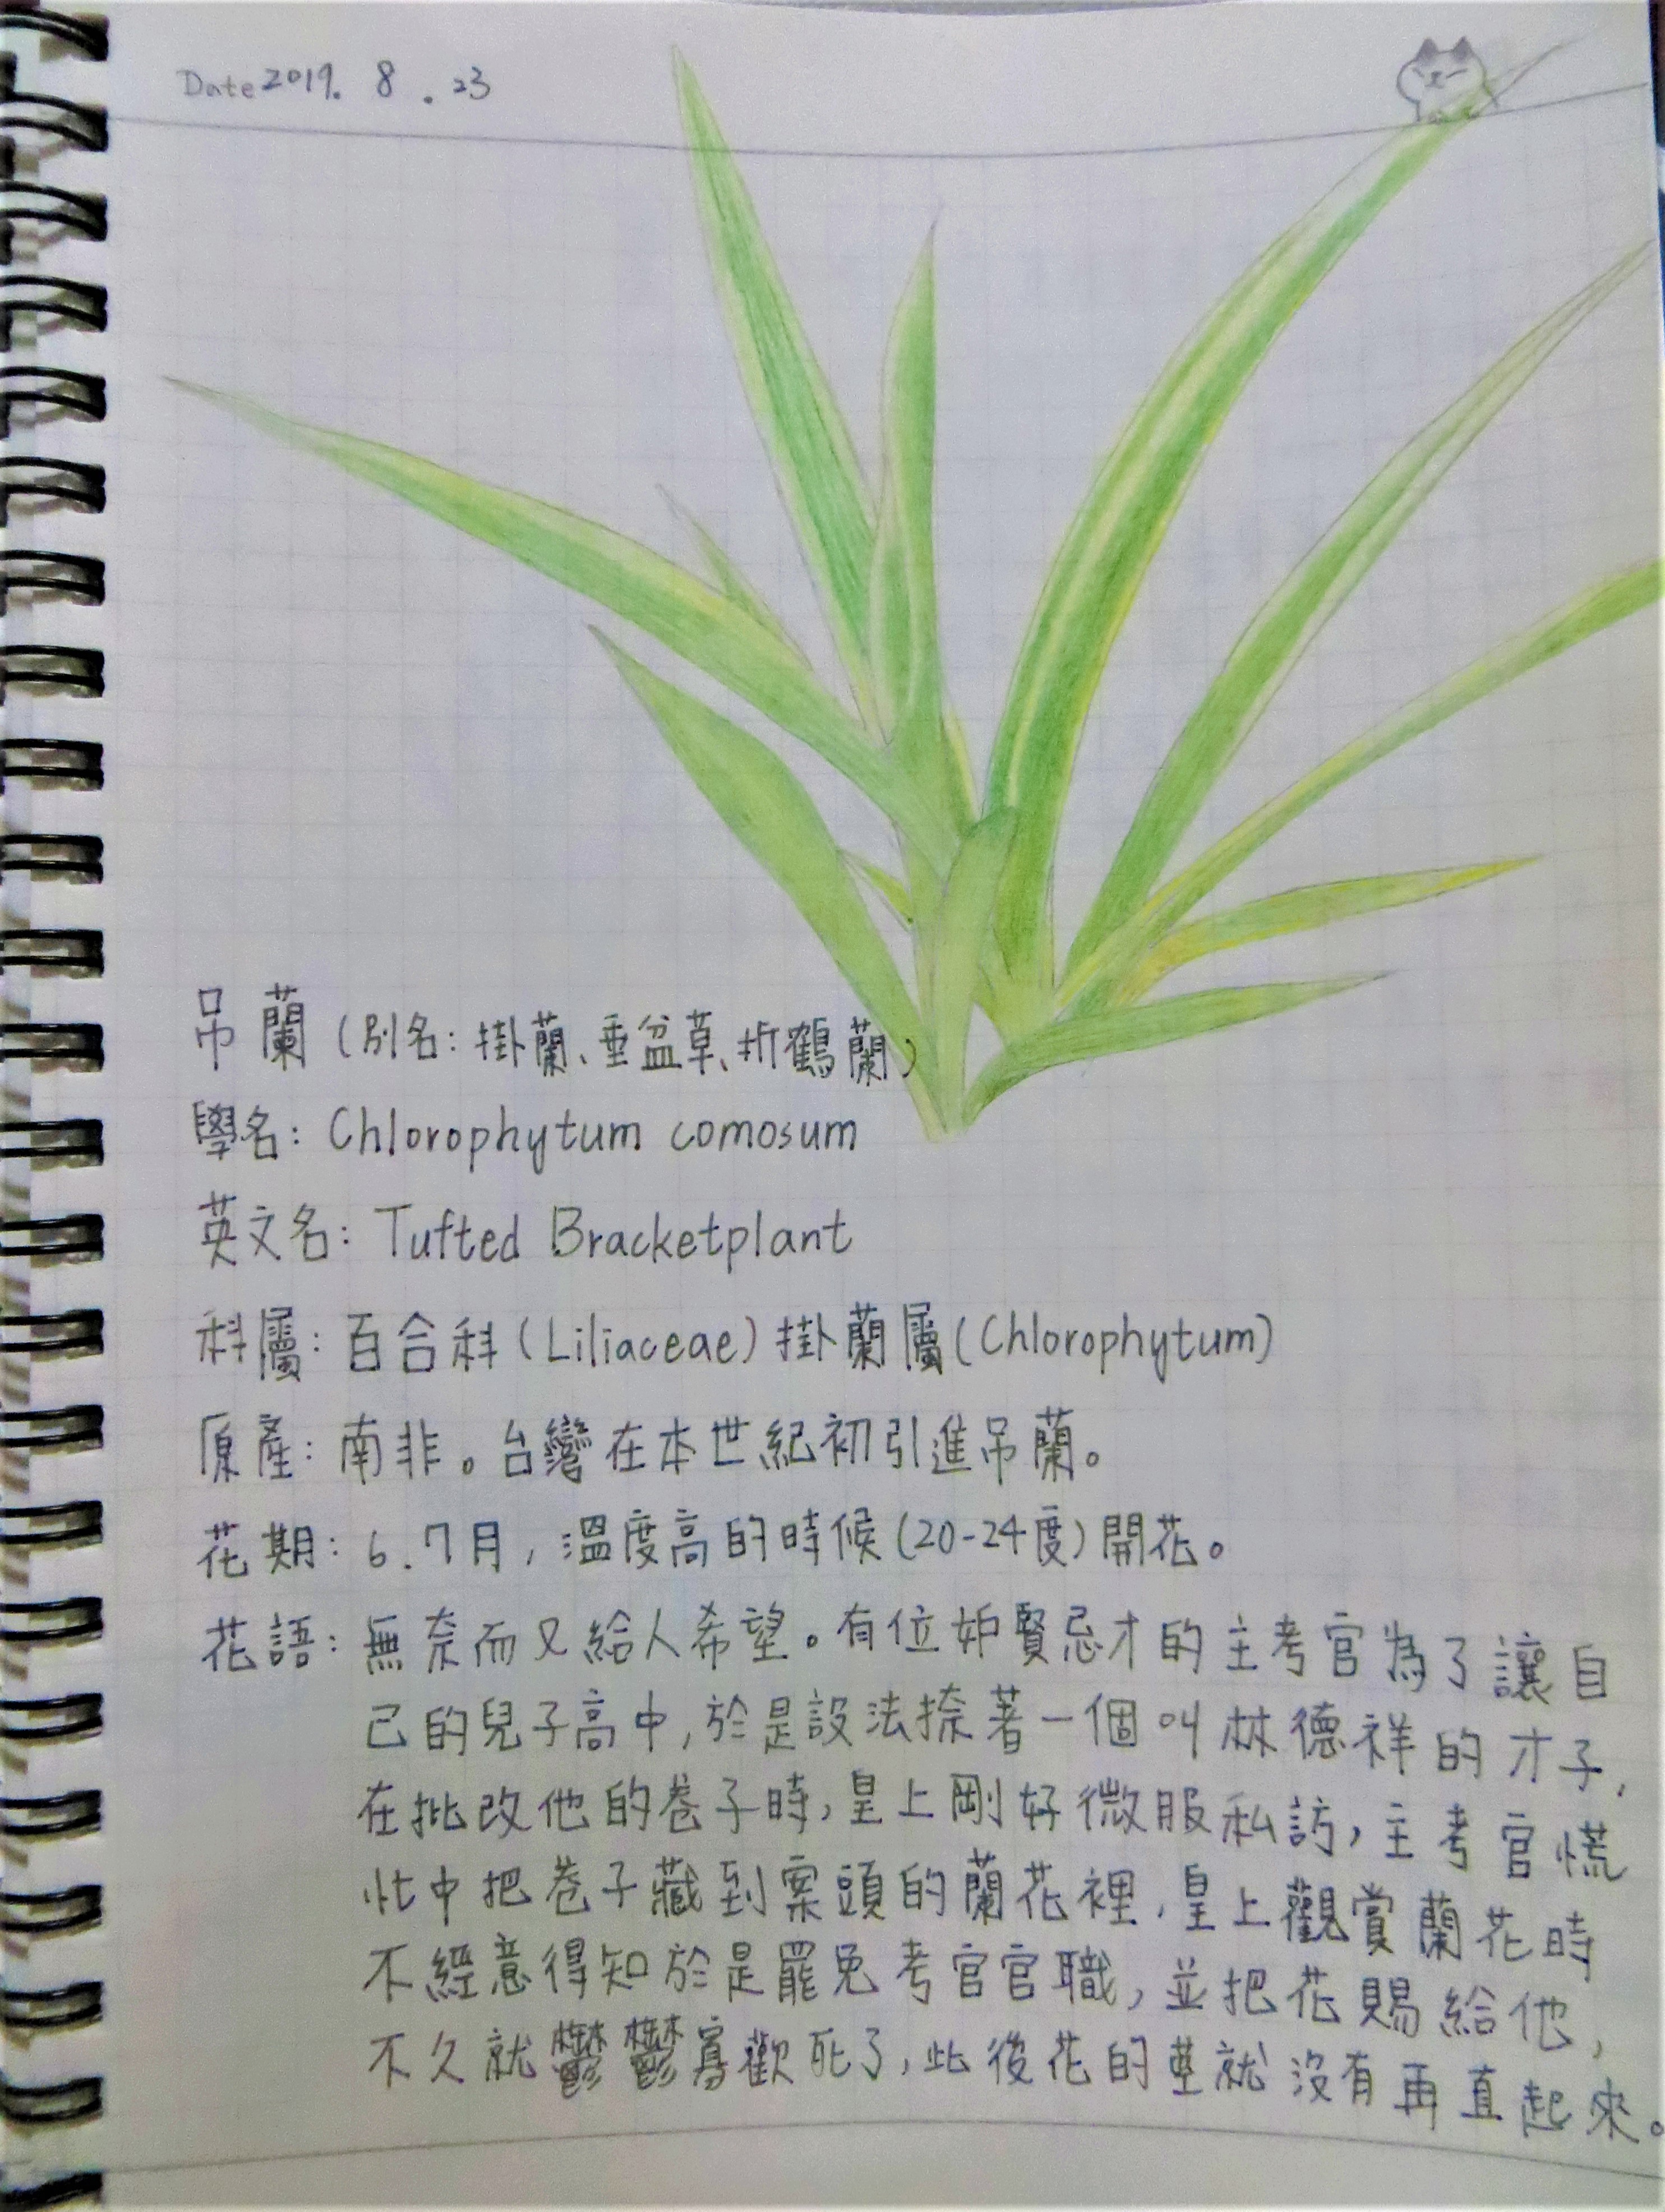 Date 2019. 8. 23
吊蘭(別名:掛蘭、垂盆草、折鶴蘭)
學名: Chlorophytum comosum
英文名: Tufted Bracketplant
科屬:百合科(Liliaceae)掛蘭屬(Chlorophytum)
原產:南非。台灣在本世紀初引進吊蘭。
花期:6.7月,溫度高的時候(20-24度)開花。
花語:無奈而又給人希望。有位妒賢忌才的主考官為了讓自
己的兒子高中,於是設法捺著一個叫林德祥的才子,
在批改他的卷子時,皇上剛好微服私訪,主考官慌
忙中把卷子藏到案頭的蘭花裡,皇上觀賞蘭花時
不經意得知於是罷免考官官職,並把花賜給他,
不久就鬱鬱寡歡死了,此後花的莖就沒有再直起來。